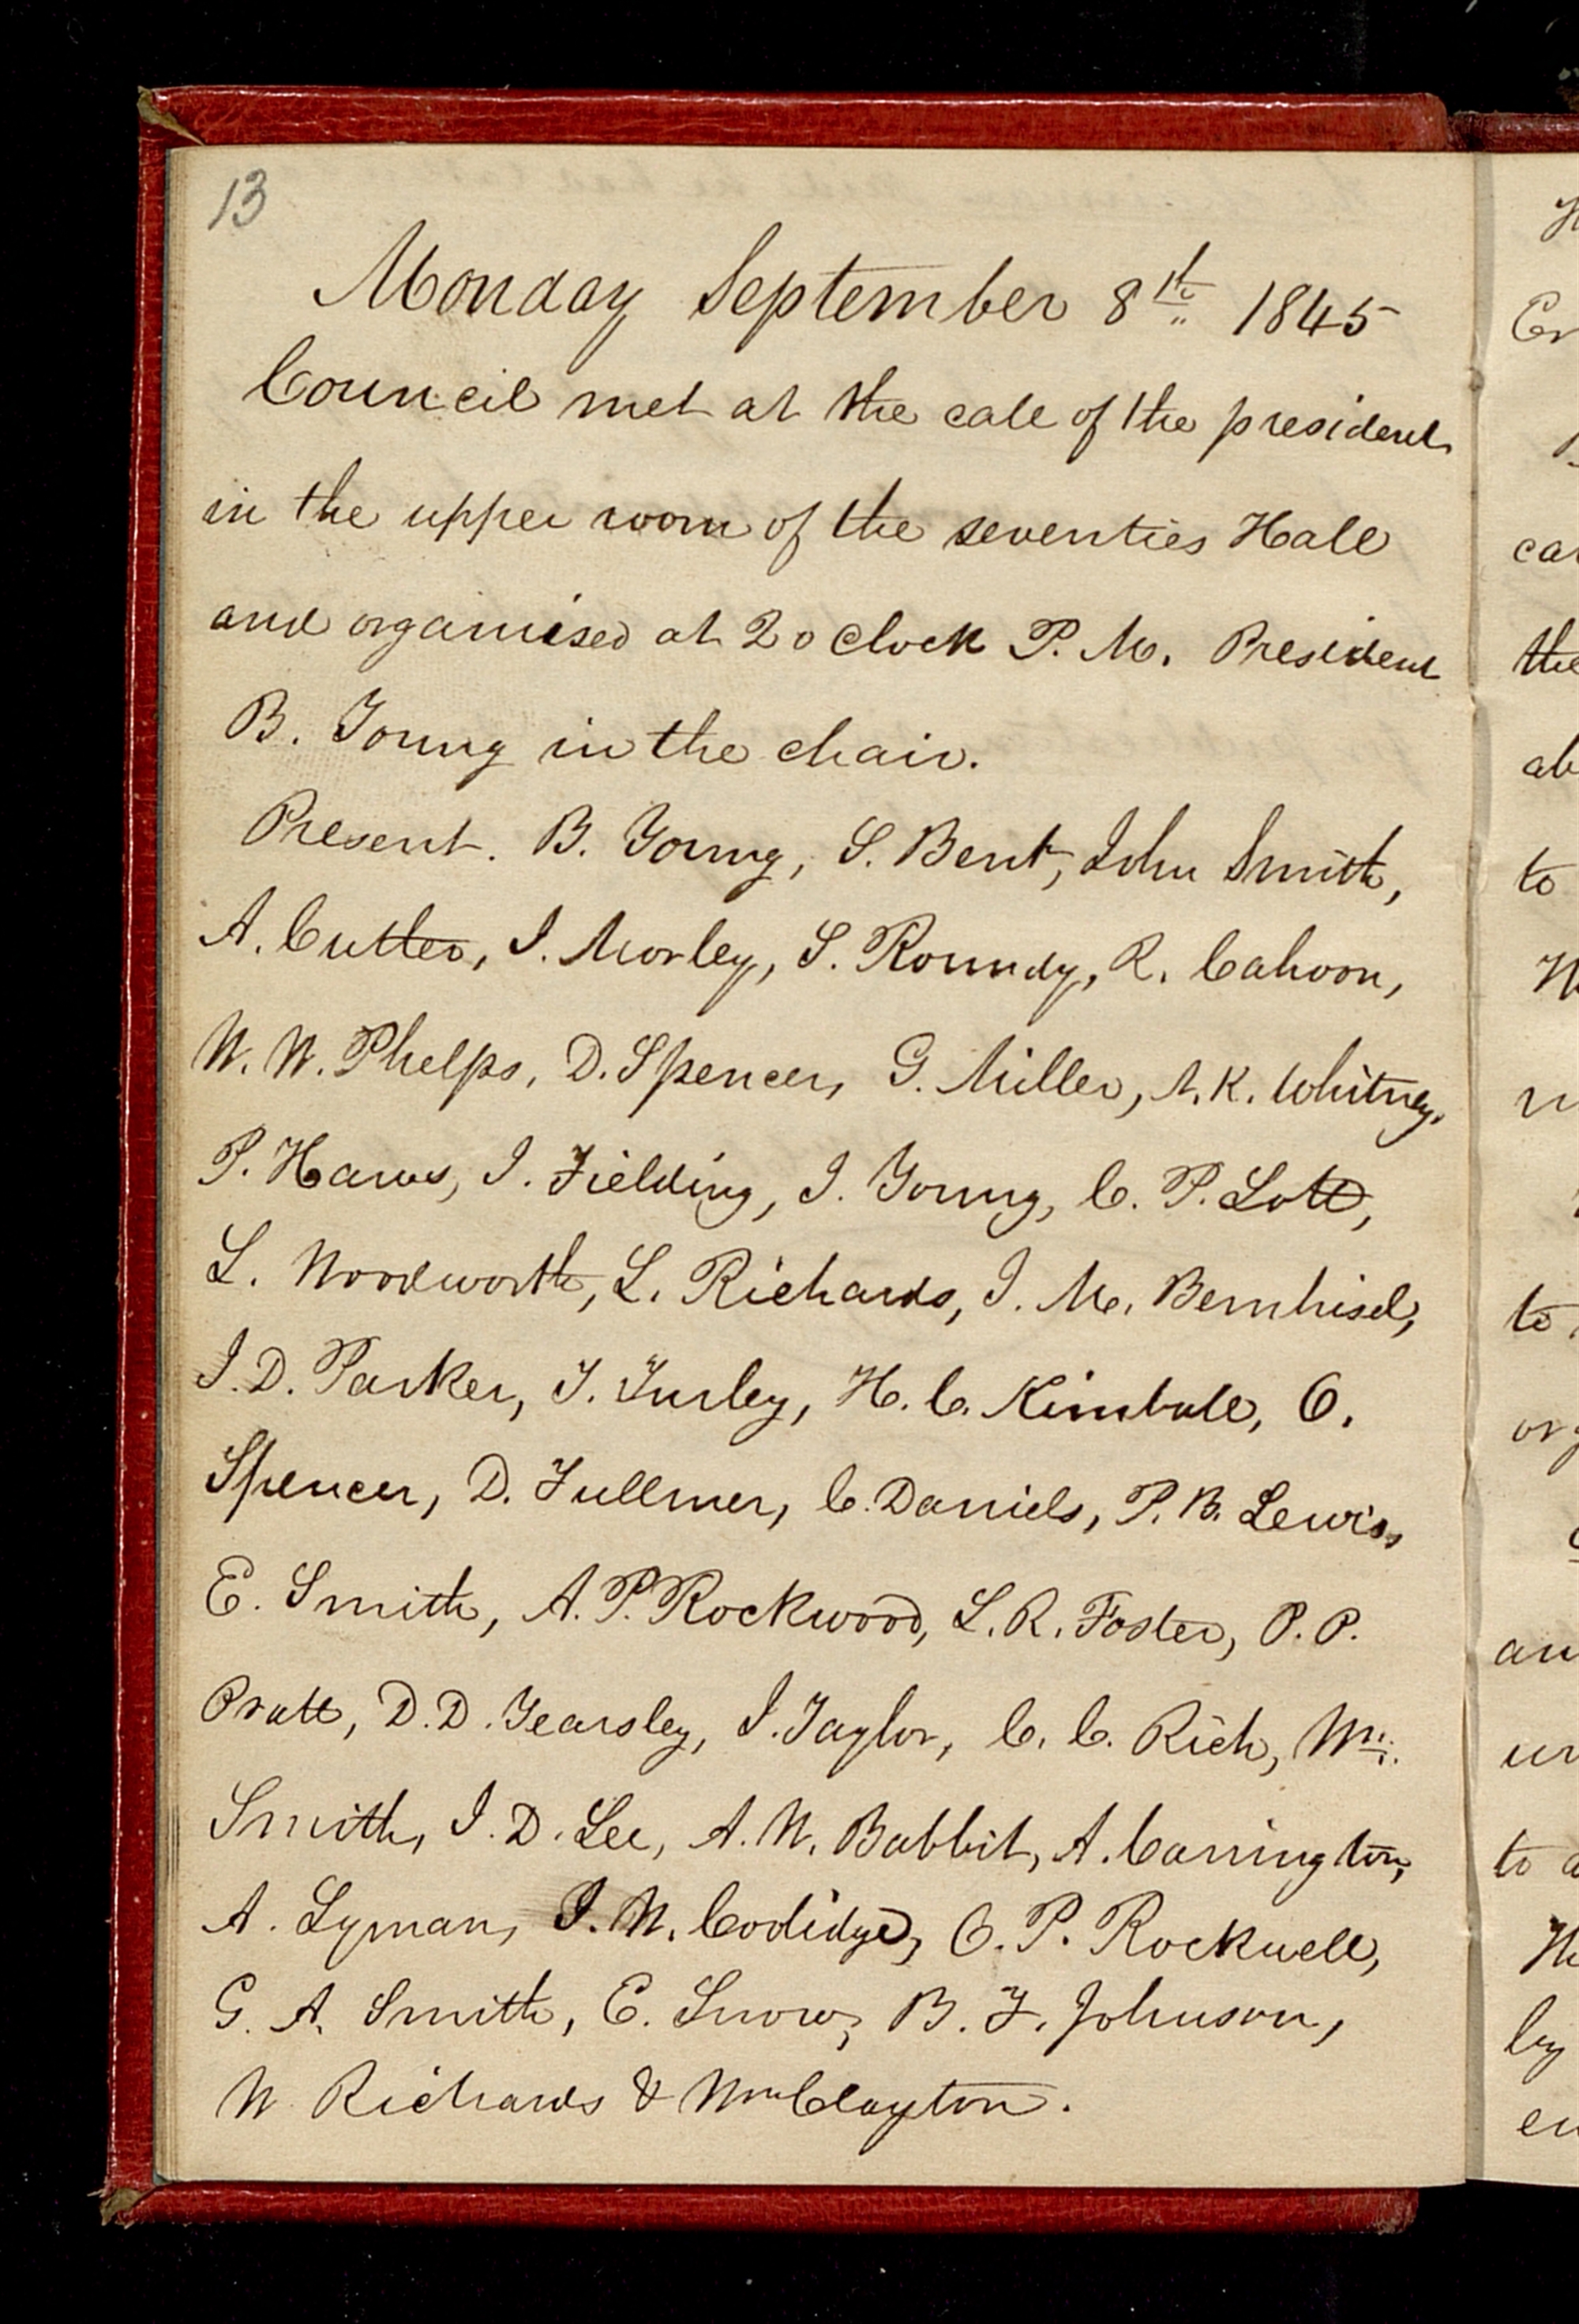 13
Monday September 8th 1845
Council met at the call of the president
in the upper room of the seventies Hall
and organised at 2 o clock P. M. President
B. Young in the chair.
Present. B. Young, S. Bent, John Smith,
A. Cutler, I. Morley, S. Roundy, R. Cahoon,
W. W. Phelps, D. Spencer, G. Miller, N. K. Whitney,
P. Haws, J. Fielding, J. Young, C. P. Lott,
L. Woodworth, L. Richards, J. M. Bernhisel,
J. D. Parker, T. Turley, H. C. Kimball, O.
Spencer, D. Fullmer, C. Daniels, P. B. Lewis,
E. Smith, A. P. Rockwood, L. R. Foster, P. P.
Pratt, D. D. Yearsley, J. Taylor, C. C. Rich, Wm.
Smith, J. D. Lee, A. W. Babbit, A. Carrington,
A. Lyman, J. W. Coolidge, O. P. Rockwell,
G. A. Smith, E. Snow, B. F. Johnson,
W Richards & Wm Clayton.